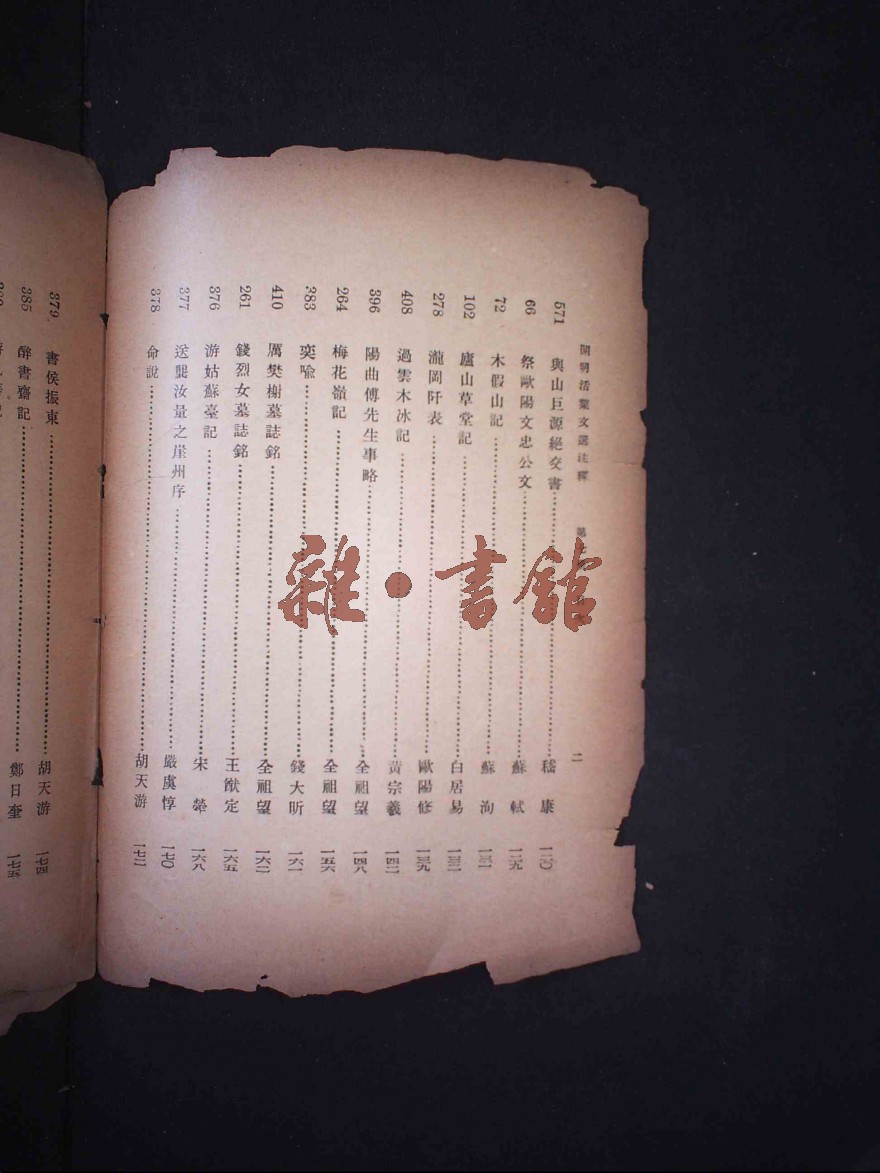 開明活葉文選注釋 第 二
571 與山巨源絕交書 嵇康 一二〇
66 祭歐陽文忠公文 蘇軾 一二九
72 木假山記 蘇洵 一三一
102 廬山草堂記 白居易 一三二
278 瀧岡阡表 歐陽修 一三九
408 過雲木冰記 黃宗羲 一四二
396 陽曲傅先生事略 全祖望 一四八
264 梅花嶺記 全祖望 一五六
383 奕喩 錢大昕 一六一
410 厲樊榭墓誌銘 全祖望 一六二
261 錢烈女墓誌銘 王猷定 一六五
376 游姑蘇臺記 宋犖 一六八
377 送龔汝量之崖州序 嚴虞惇 一七〇
378 命說 胡天游 一七二
379 書侯振東 胡天游 一七四
385 醉書齋記 鄭日奎 一七五
雜·書館